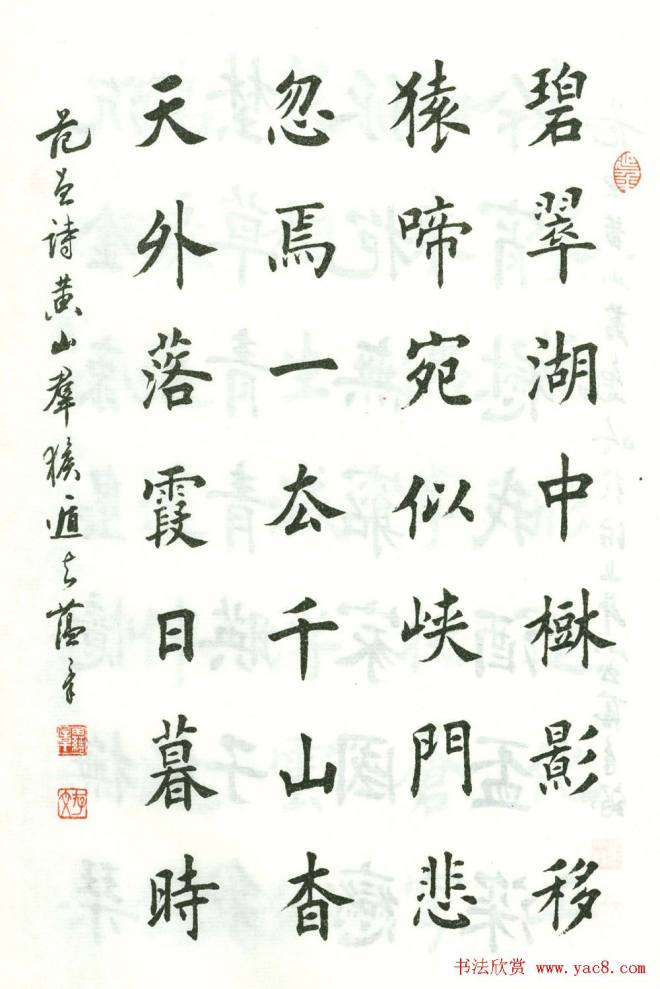 碧翠湖中影移
猿啼宛似峡門悲
忽焉一厺千山杳
天外落霞日暮時
范曾詩黄山羣猴遁去
书法欣赏 www.yac8.com